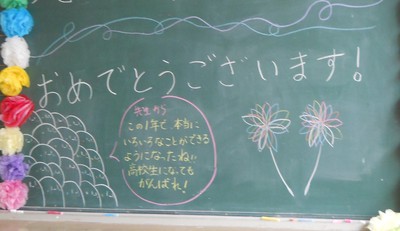 おめでとうございます!
先生から
この1年で、本当に
いろいろなことができる
ようになったね!!
高校生になっても
がんばれ!